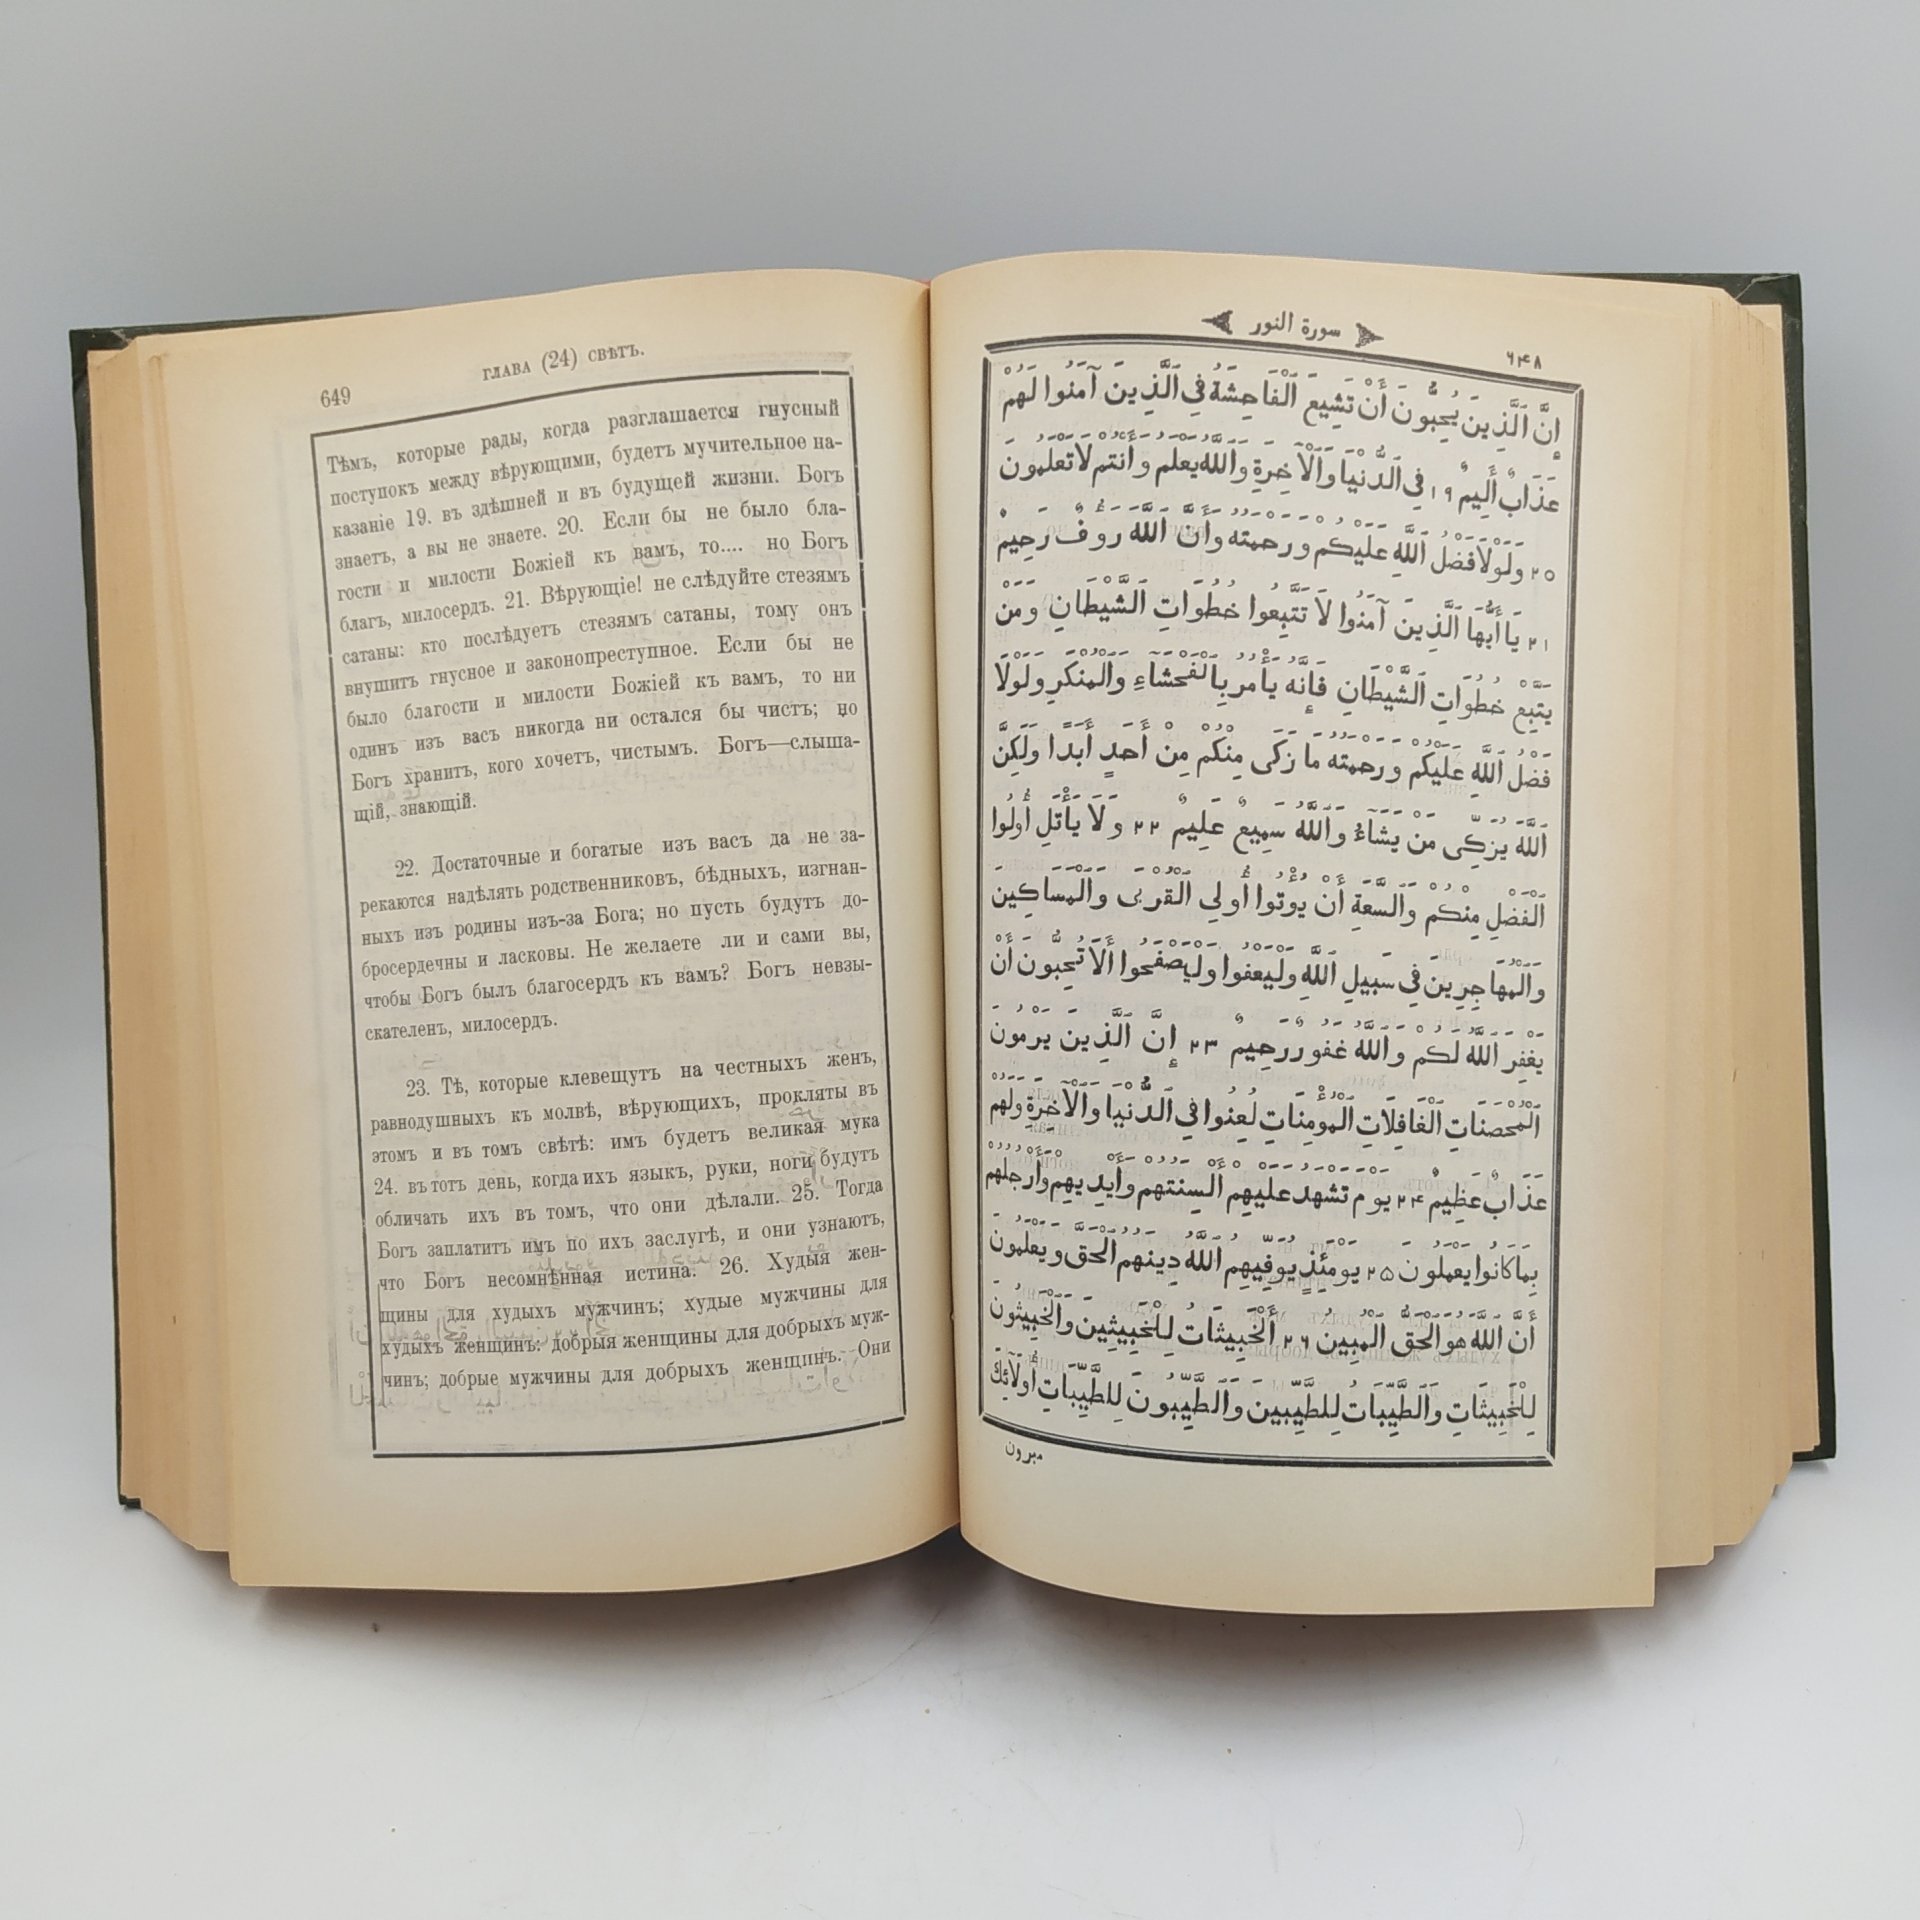 649
ГЛАВА (24) СВѢТЪ.
Тѣмъ, которые рады, когда разглашается гнусный
поступокъ между вѣрующими, будетъ мучительное на-
казаніе 19. въ здѣшней и въ будущей жизни. Богъ
знаетъ, а вы не знаете. 20. Если бы не было бла-
гости и милости Божіей къ вамъ, то.... но Богъ
благъ, милосердъ. 21. Вѣрующіе! не слѣдуйте стезямъ
сатаны: кто послѣдуетъ стезямъ сатаны, тому онъ
внушитъ гнусное и законопреступное. Если бы не
было благости и милости Божіей къ вамъ, то ни
одинъ изъ васъ никогда ни остался бы чистъ; но
Богъ хранитъ, кого хочетъ, чистымъ. Богъ—слыша-
щій, знающій.
22. Достаточные и богатые изъ васъ да не за-
рекаются надѣлять родственниковъ, бѣдныхъ, изгнан-
ныхъ изъ родины изъ-за Бога; но пусть будутъ до-
бросердечны и ласковы. Не желаете ли и сами вы,
чтобы Богъ былъ благосердъ къ вамъ? Богъ невзы-
скателенъ, милосердъ.
23. Тѣ, которые клевещутъ на честныхъ женъ,
равнодушныхъ къ молвѣ, вѣрующихъ, прокляты въ
этомъ и въ томъ свѣтѣ: имъ будетъ великая мука
24. въ тотъ день, когда ихъ языкъ, руки, ноги будутъ
обличать ихъ въ томъ, что они дѣлали. 25. Тогда
Богъ заплатитъ имъ по ихъ заслугѣ, и они узнаютъ,
что Богъ несомнѣнная истина. 26. Худыя жен-
щины для худыхъ мужчинъ; худые мужчины для
худыхъ женщинъ: добрыя женщины для добрыхъ муж-
чинъ; добрые мужчины для добрыхъ женщинъ. Они
سورة النور
۶۴۸
إِنَّ ٱلَّذِينَ يُحِبُّونَ أَنْ تَشِيعَ ٱلْفَاحِشَةُ فِي ٱلَّذِينَ آمَنُوا لَهُمْ
عَذَابٌ أَلِيمٌ ۱۹ فِي ٱلدُّنْيَا وَٱلْآخِرَةِ وَٱللَّهُ يَعْلَمُ وَأَنْتُمْ لَا تَعْلَمُونَ
۲۰ وَلَوْلَا فَضْلُ ٱللَّهِ عَلَيْكُمْ وَرَحْمَتُهُ وَأَنَّ ٱللَّهَ رَوُفٌ رَحِيمٌ
۲۱ يَا أَيُّهَا ٱلَّذِينَ آمَنُوا لَا تَتَّبِعُوا خُطُوَاتِ ٱلشَّيْطَانِ وَمَنْ
يَتَّبِعْ خُطُوَاتِ ٱلشَّيْطَانِ فَإِنَّهُ يَأْمُرُ بِٱلْفَحْشَآءِ وَٱلْمُنْكَرِ وَلَوْلَا
فَضْلُ ٱللَّهِ عَلَيْكُمْ وَرَحْمَتُهُ مَا زَكَى مِنْكُمْ مِنْ أَحَدٍ أَبَدًا وَلَكِنَّ
ٱللَّهَ يُزَكِّى مَنْ يَشَآءُ وَٱللَّهُ سَمِيعٌ عَلِيمٌ ۲۲ وَلَا يَأْتَلِ أُولُوا
ٱلْفَضْلِ مِنْكُمْ وَٱلسَّعَةِ أَنْ يُؤْتُوا أُولِي ٱلْقُرْبَى وَٱلْمَسَاكِينَ
وَٱلْمُهَاجِرِينَ فِي سَبِيلِ ٱللَّهِ وَلْيَعْفُوا وَلْيَصْفَحُوا أَلَا تُحِبُّونَ أَنْ
يَغْفِرَ ٱللَّهُ لَكُمْ وَٱللَّهُ غَفُورٌ رَحِيمٌ ۲۳ إِنَّ ٱلَّذِينَ يَرْمُونَ
ٱلْمُحْصَنَاتِ ٱلْغَافِلَاتِ ٱلْمُؤْمِنَاتِ لُعِنُوا فِي ٱلدُّنْيَا وَٱلْآخِرَةِ وَلَهُمْ
عَذَابٌ عَظِيمٌ ۲۴ يَوْمَ تَشْهَدُ عَلَيْهِمْ أَلْسِنَتُهُمْ وَأَيْدِيهِمْ وَأَرْجُلُهُمْ
بِمَا كَانُوا يَعْمَلُونَ ۲۵ يَوْمَئِذٍ يُوَفِّيهِمُ ٱللَّهُ دِينَهُمُ ٱلْحَقَّ وَيَعْلَمُونَ
أَنَّ ٱللَّهَ هُوَ ٱلْحَقُّ ٱلْمُبِينُ ۲۶ أَلْخَبِيثَاتُ لِلْخَبِيثِينَ وَٱلْخَبِيثُونَ
لِلْخَبِيثَاتِ وَٱلطَّيِّبَاتُ لِلطَّيِّبِينَ وَٱلطَّيِّبُونَ لِلطَّيِّبَاتِ أُولَآئِكَ
مبرون